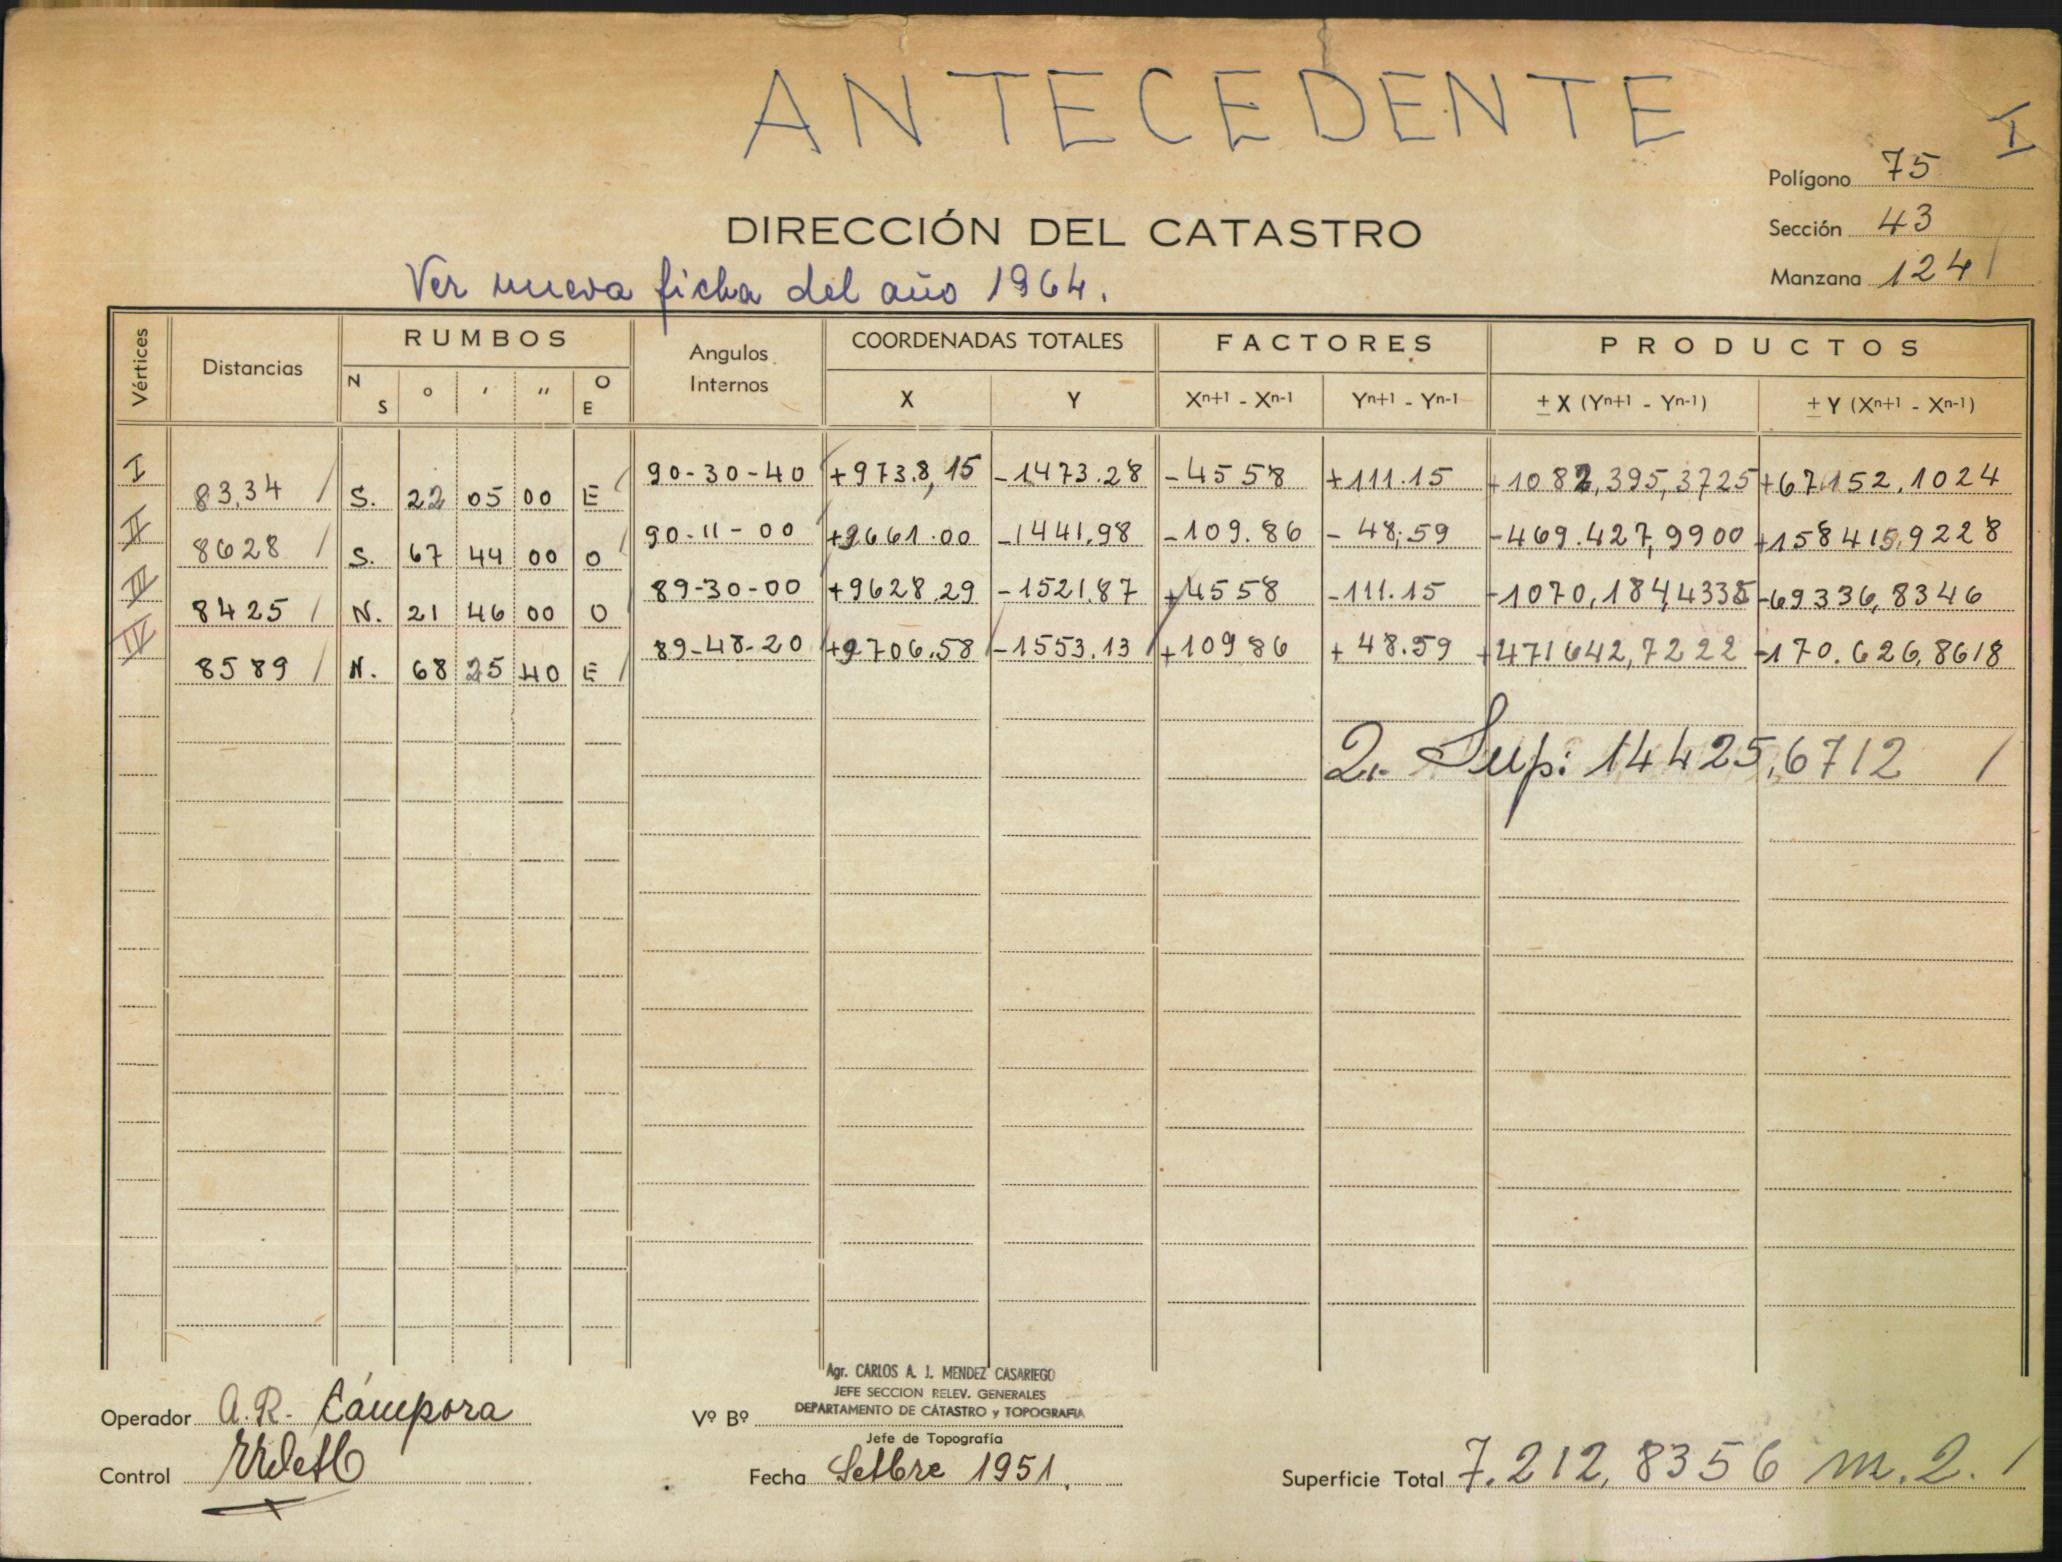 ANTECEDENTE
I
Polígono 75
DIRECCIÓN DEL CATASTRO
Sección 43
Ver nueva ficha del año 1964.
Manzana 124
Vértices Distancias RUMBOS Angulos Internos COORDENADAS TOTALES FACTORES PRODUCTOS
N S ° ' " O E X Y Xn+1 - Xn-1 Yn+1 - Yn-1 ± X (Yn+1 - Yn-1) ± Y (Xn+1 - Xn-1)
I 90-30-40 +973.8,15 -1473.28 -4558 +111.15 +1082,395,3725 +67.152,1024
83,34 S. 22 05 00 E
II 90-11-00 +9661.00 -1441,98 -109.86 -48,59 -469.427,9900 +158415,9228
8628 S. 67 44 00 O
III 89-30-00 +9628.29 -1521,87 +4558 -111.15 -1070,184,4335 -69336,8346
8425 N. 21 46 00 O
IV 89-48-20 +9706.58 -1553.13 +10986 +48.59 +471642,7222 -170.626,8618
8589 N. 68 25 40 E
2. Sup: 14425,6712
Agr. CARLOS A. J. MENDEZ CASARIEGO
JEFE SECCION RELEV. GENERALES
DEPARTAMENTO DE CATASTRO y TOPOGRAFIA
Operador A.R. Cámpora
Vº Bº
Jefe de Topografía
Control
Fecha Setbre 1951.
Superficie Total 7.212,8356 m.2.